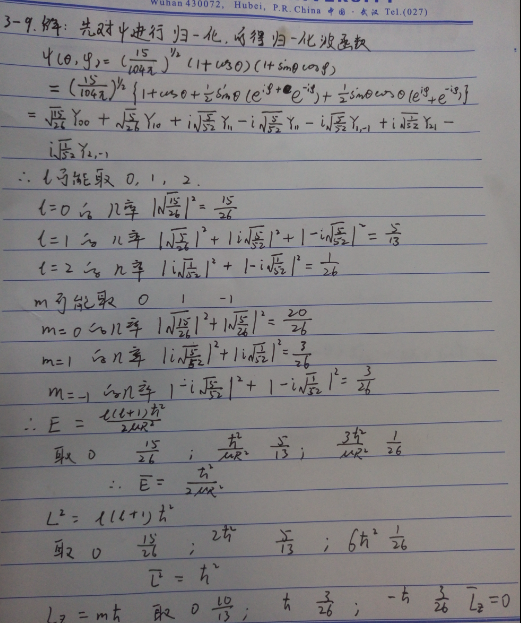 Wuhan 430072, Hubei, P.R. China 中国·武汉 Tel.(027)
3-9. 解: 先对ψ进行归一化, 可得归一化波函数
ψ(θ,φ) = (15/104π)^{1/2} (1+cosθ)(1+sinθcosφ)
= (15/104π)^{1/2} {1+cosθ+½sinθ(e^{iφ}+e^{-iφ})+½sinθcosθ(e^{iφ}+e^{-iφ})}
= √(15/26) Y₀₀ + √(5/26) Y₁₀ + i√(5/52) Y₁₁ - i√(5/52) Y₁₁ - i√(5/52) Y₁,₋₁ + i√(1/52) Y₂₁ -
i√(1/52) Y₂,₋₁
∴ l可能取 0, 1, 2.
l=0 的几率 |√(15/26)|² = 15/26
l=1 的几率 |√(5/26)|² + |i√(5/52)|² + |-i√(5/52)|² = 5/13
l=2 的几率 |i√(1/52)|² + |-i√(1/52)|² = 1/26
m可能取 0 1 -1
m=0的几率 |√(15/26)|² + |√(5/26)|² = 20/26
m=1 的几率 |i√(5/52)|² + |i√(1/52)|² = 3/26
m=-1 的几率 |-i√(5/52)|² + |-i√(1/52)|² = 3/26
∴ E = l(l+1)ħ²/2μR²
取 0 15/26 ; ħ²/μR² 5/13 ; 3ħ²/μR² 1/26
∴ E̅ = ħ²/2μR²
L² = l(l+1)ħ²
取 0 15/26 ; 2ħ² 5/13 ; 6ħ² 1/26
L̅² = ħ²
L_z = mħ 取 0 10/13 ; ħ 3/26 ; -ħ 3/26 L̅_z = 0